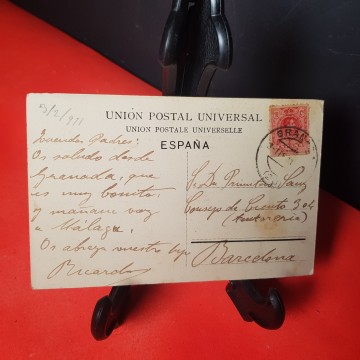 9/2/911
UNIÓN POSTAL UNIVERSAL
UNION POSTALE UNIVERSELLE
ESPAÑA
Queridos Padres:
Os saludo desde
Granada, que
es muy bonito
y mañana voy
a Málaga.
Os abraza vuestro hijo
Ricardo
GRAN
S. Dn Primitivo Sanz
Consejo de Ciento 304
Barcelona